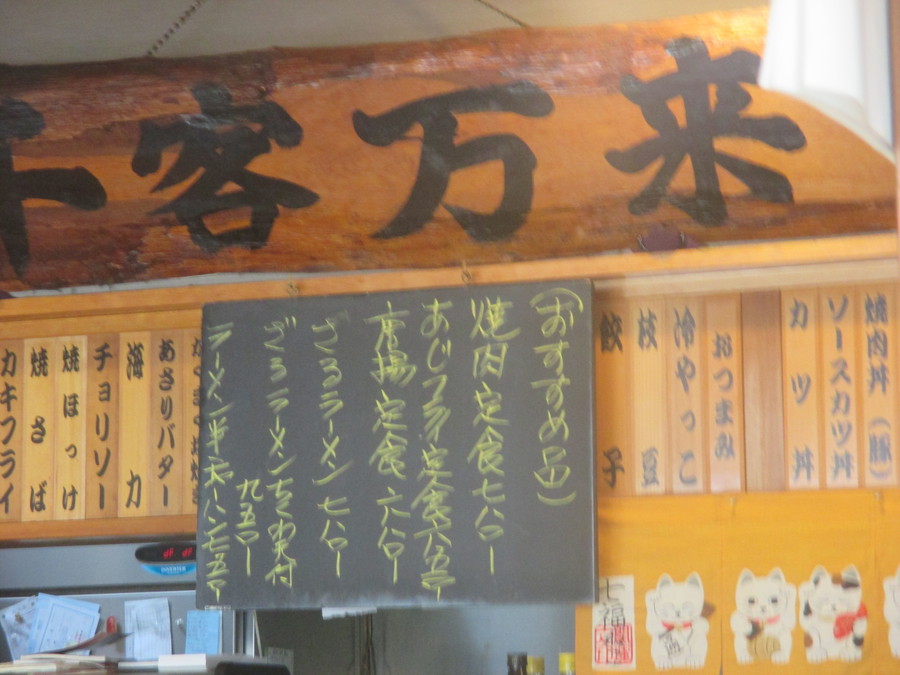 千客万来
焼肉丼（豚）
ソースカツ丼
カツ丼
おつまみ
冷やっこ
枝豆
餃子
（おすすめ品）
焼肉定食七八〇ー
あじフライ定食六五〇ー
唐揚定食六八〇ー
ざるラーメン七八〇ー
ざるラーメン
九五〇ー
ラーメン半
あさりバター
海
力
チョリソー
焼ほっけ
焼さば
カキフライ
七福